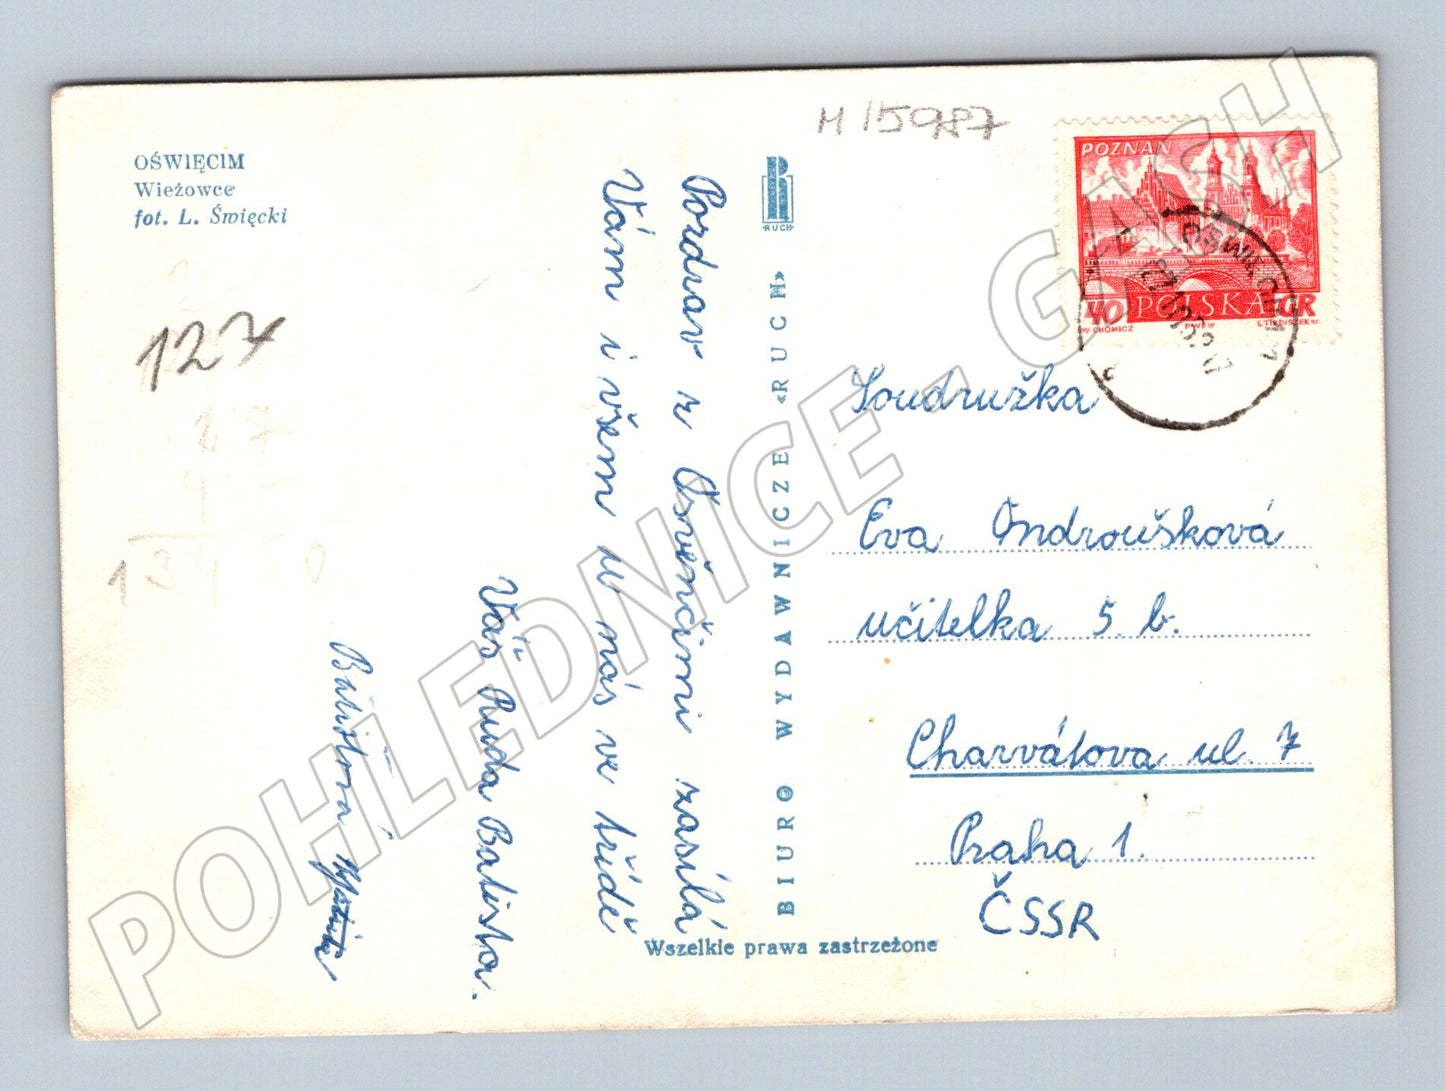 OŚWIĘCIM
Wieżowce
fot. L. Święcki
M 15987
127
27
Pozdrav z Osvěnčimi zasílá
Vám i všem u nás ve třídě
Váš Ruda Batista.
Batistová
RUCH
BIURO WYDAWNICZE «RUCH»
Wszelkie prawa zastrzeżone
POZNAŃ
40 POLSKA GR
W. CHOMICZ PWPW
OŚWIĘCIM 1
Soudružka
Eva Ondroušková
učitelka 5. b.
Charvátova ul. 7
Praha 1.
ČSSR
POHLEDNICE - GALCH